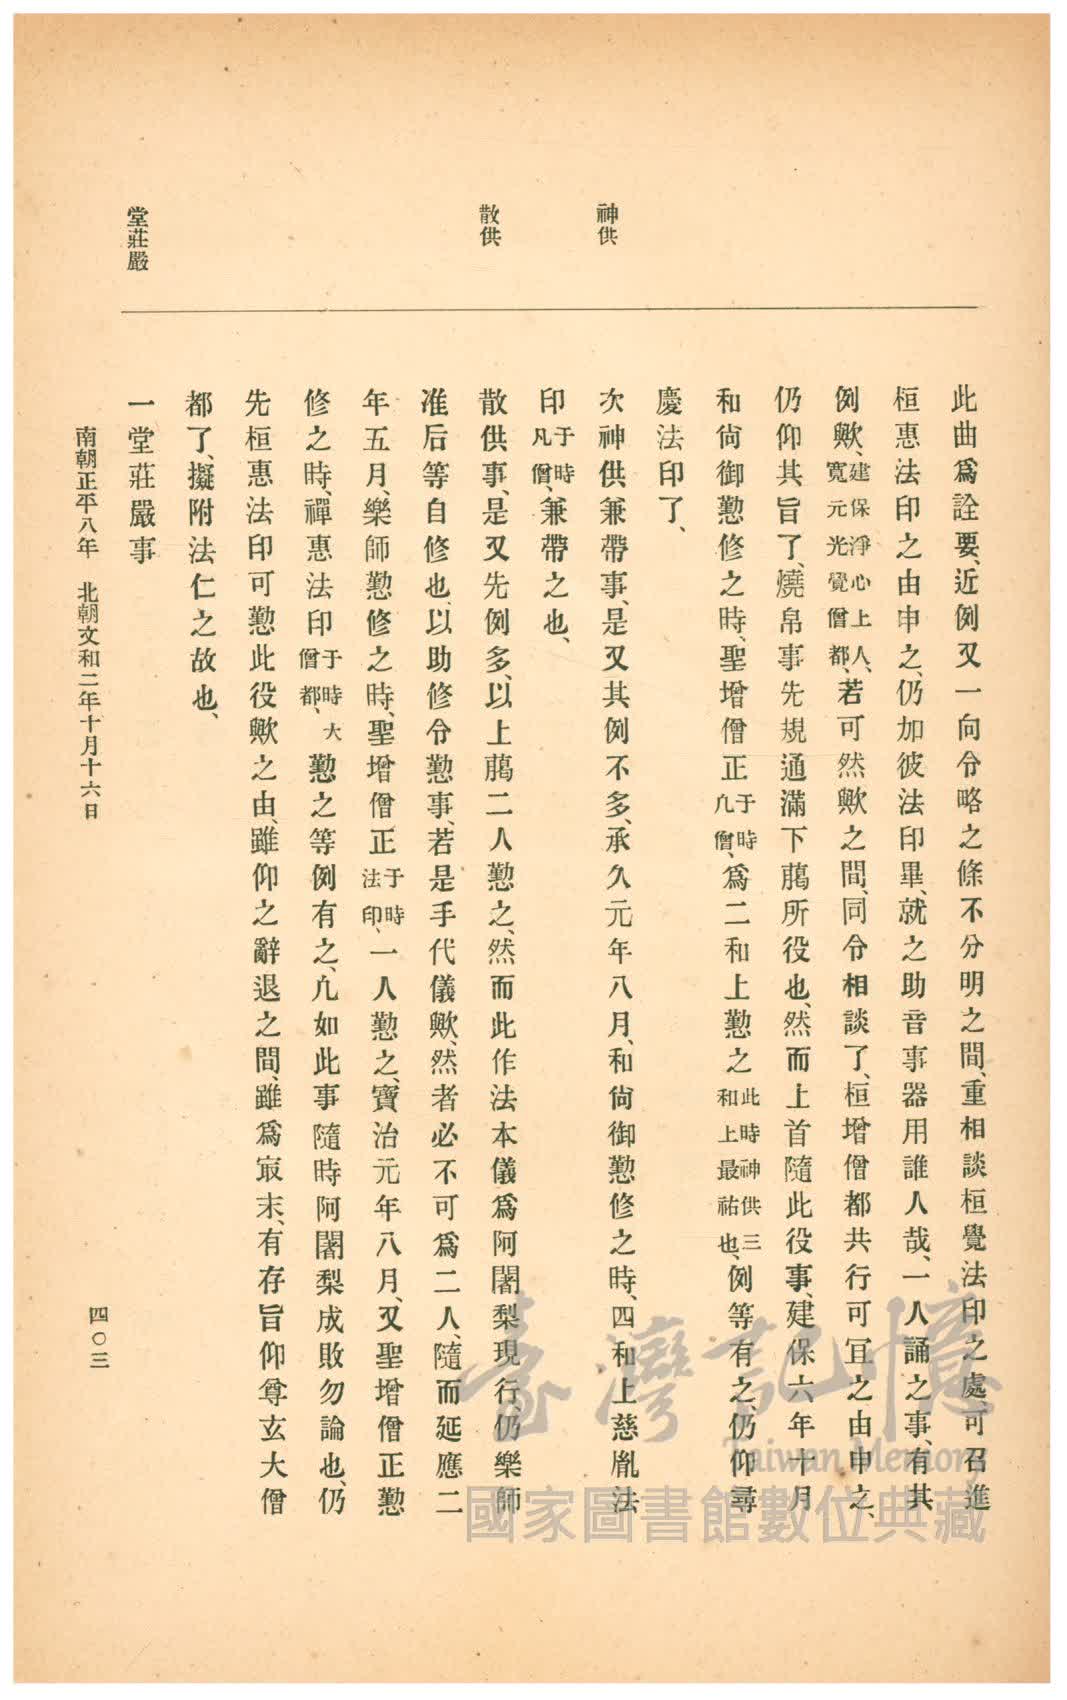 神供
散供
堂莊嚴
此曲爲詮要、近例又一向令略之條不分明之間、重相談桓覺法印之處、可召進
桓惠法印之由申之、仍加彼法印畢、就之助音事器用誰人哉、一人誦之事、有其
例歟、建保淨心上人、寬元光覺僧都、若可然歟之間、同令相談了、桓增僧都共行可宜之由申之、
仍仰其旨了、燒帛事先規通滿下﨟所役也、然而上首隨此役事、建保六年十月
和尙御懃修之時、聖增僧正于時凡僧、爲二和上懃之此時神供三和上最祐也、例等有之、仍仰尋
慶法印了、
次神供兼帶事、是又其例不多、承久元年八月、和尙御懃修之時、四和上慈胤法
印于時凡僧、兼帶之也、
散供事、是又先例多、以上﨟二人懃之、然而此作法本儀爲阿闍梨現行、仍樂師
准后等自修也、以助修令懃事、若是手代儀歟、然者必不可爲二人、隨而延應二
年五月、樂師懃修之時、聖增僧正于時法印、一人懃之、寶治元年八月、又聖增僧正懃
修之時、禪惠法印于時大僧都、懃之等例有之、凡如此事隨時阿闍梨成敗勿論也、仍
先桓惠法印可懃此役歟之由、雖仰之辭退之間、雖爲㝡末、有存旨仰尊玄大僧
都了、擬附法仁之故也、
一堂莊嚴事
南朝正平八年　北朝文和二年十月十六日
四〇三
臺灣記憶
Taiwan Memory
國家圖書館數位典藏